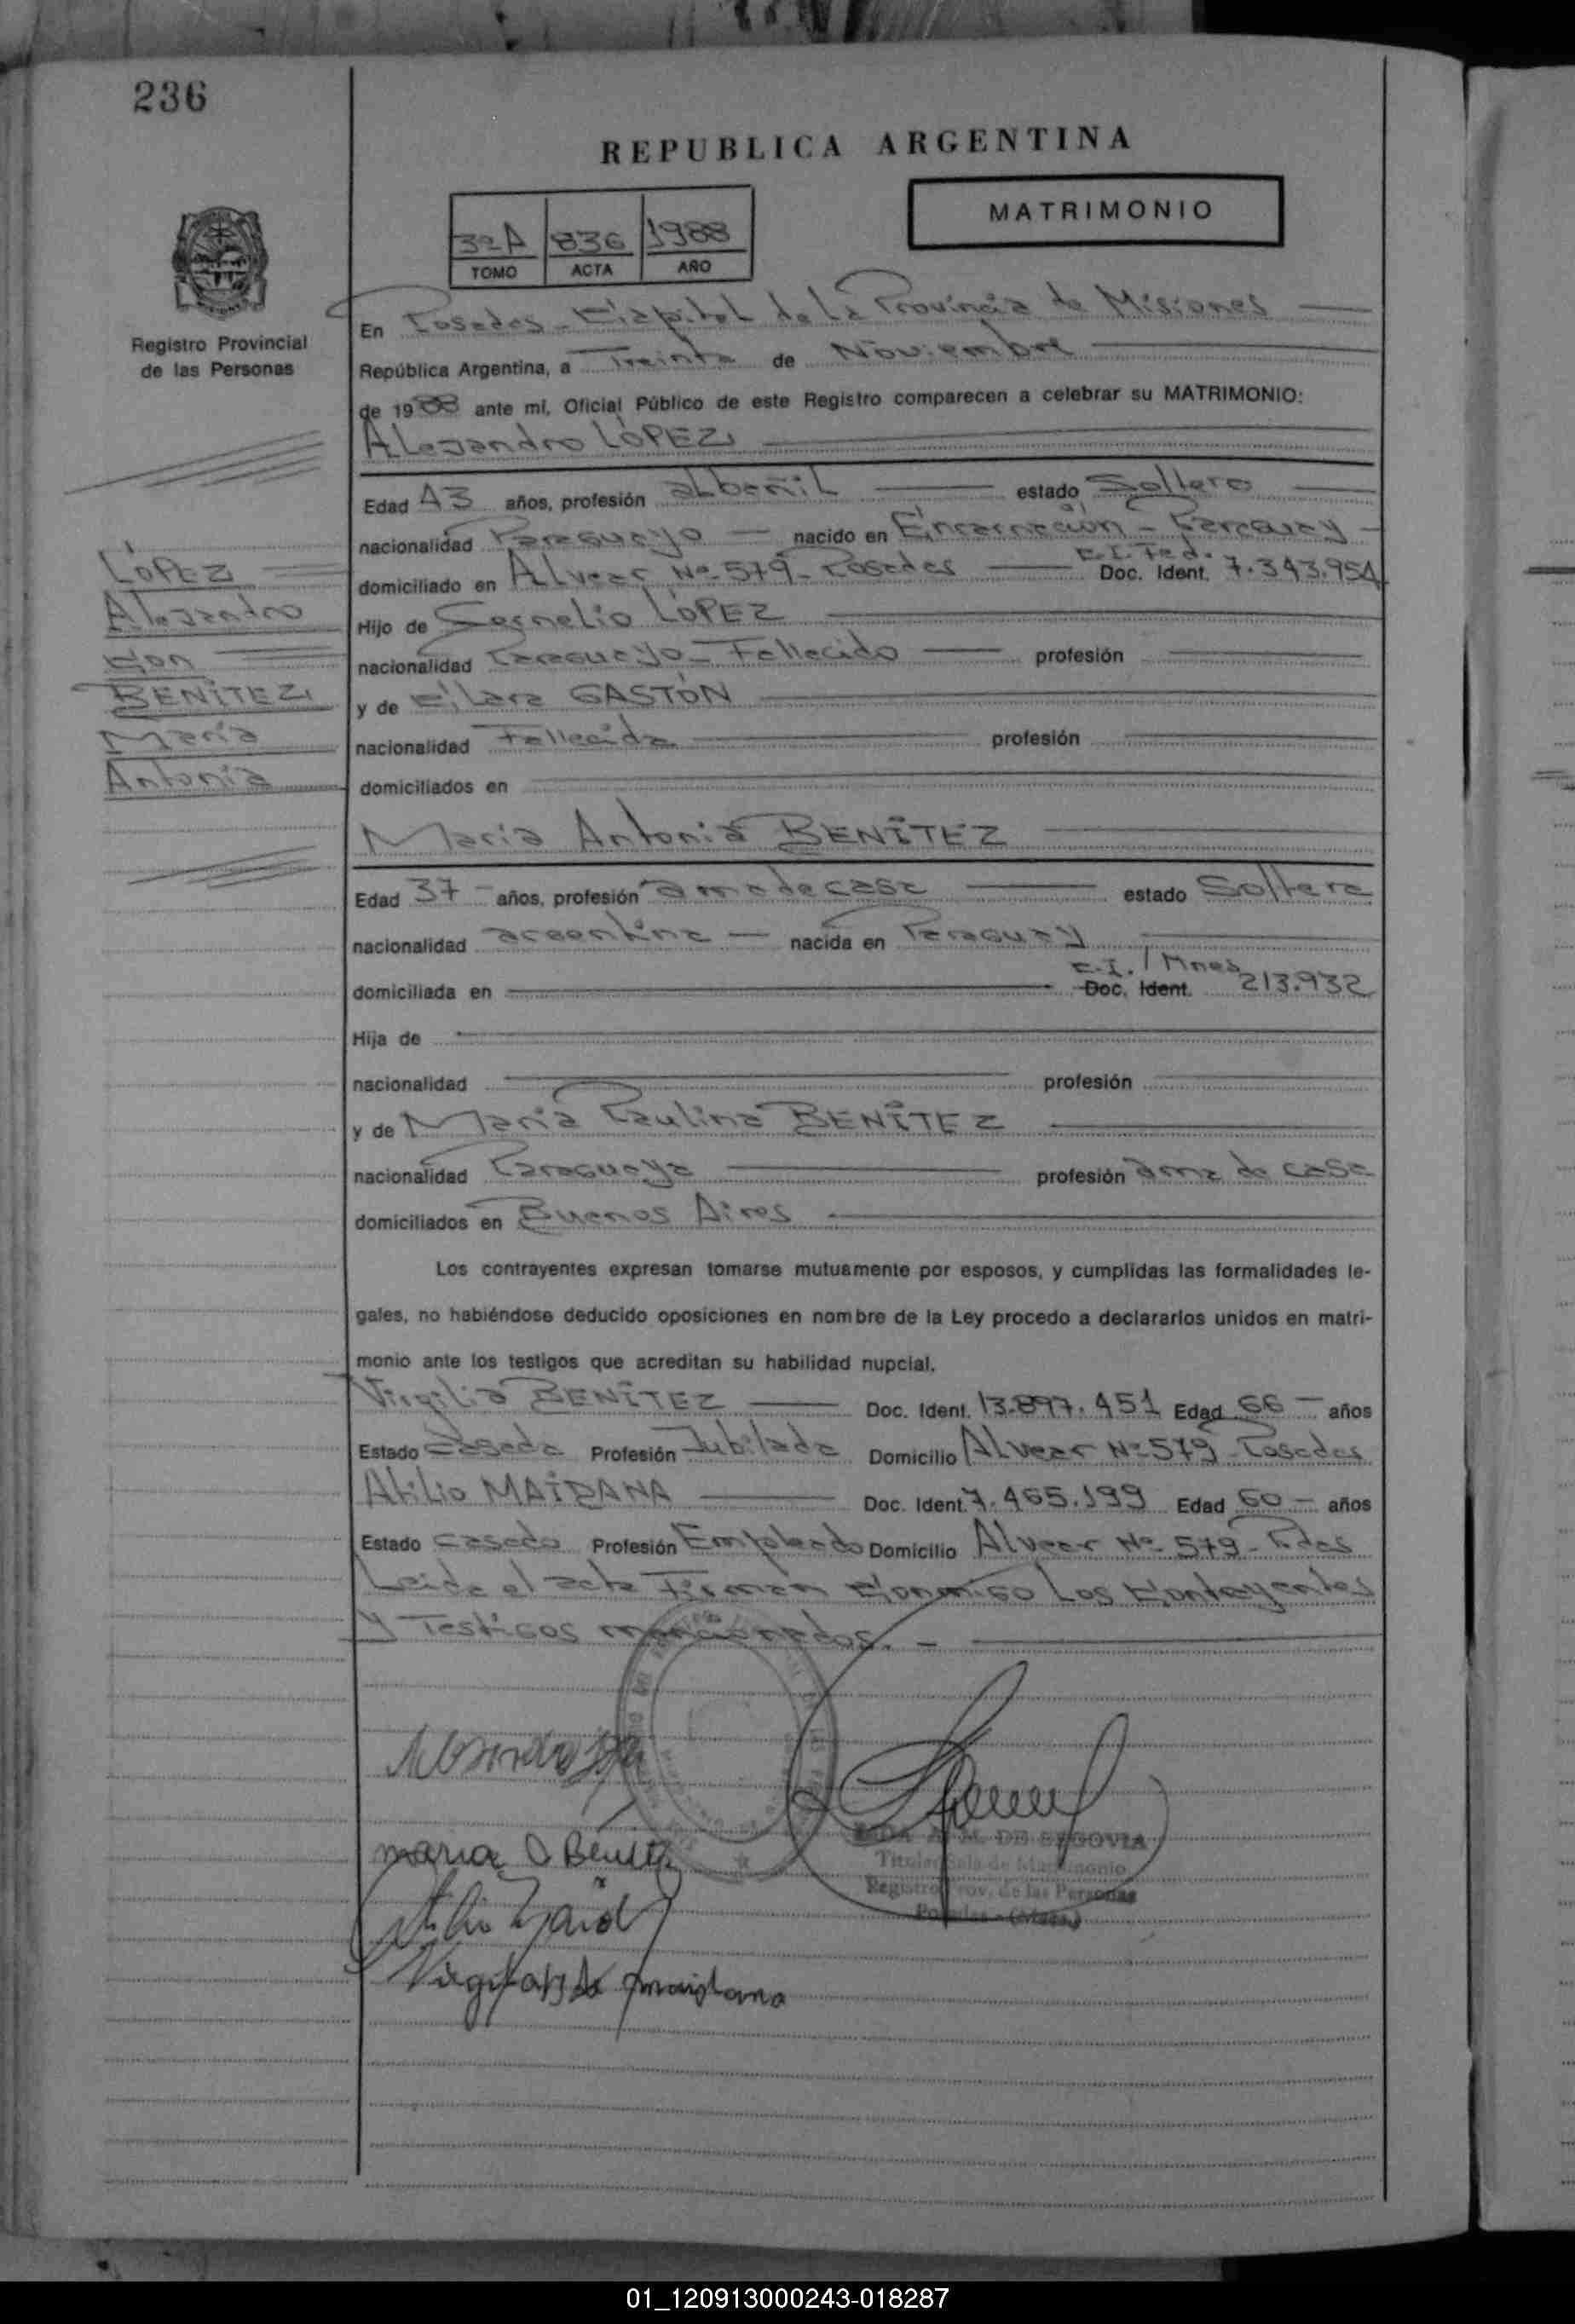 236
REPUBLICA ARGENTINA
MATRIMONIO
3ºA 836 1988
TOMO ACTA AÑO
Registro Provincial
de las Personas
En Posadas - Capital de la Provincia de Misiones
República Argentina, a Treinta de Noviembre
de 1988 ante mí, Oficial Público de este Registro comparecen a celebrar su MATRIMONIO:
Alejandro LÓPEZ
Edad 43 años, profesión albañil estado Soltero
nacionalidad Paraguayo nacido en Encarnación - Paraguay
C.I. Fed.
domiciliado en Alvear Nº 579 - Posadas Doc. Ident. 7.343.954
Hijo de Cornelio LÓPEZ
nacionalidad Paraguayo - Fallecido profesión
y de Clara GASTÓN
nacionalidad Fallecida profesión
domiciliados en
LÓPEZ
Alejandro
con
BENÍTEZ
María
Antonia
María Antonia BENÍTEZ
Edad 37 años, profesión ama de casa estado Soltera
nacionalidad argentina nacida en Paraguay
C.I. Mnes
domiciliada en Doc. Ident. 213.932
Hija de
nacionalidad profesión
y de María Paulina BENÍTEZ
nacionalidad Paraguaya profesión ama de casa
domiciliados en Buenos Aires
Los contrayentes expresan tomarse mutuamente por esposos, y cumplidas las formalidades le-
gales, no habiéndose deducido oposiciones en nombre de la Ley procedo a declararlos unidos en matri-
monio ante los testigos que acreditan su habilidad nupcial.
Virgilia BENÍTEZ Doc. Ident. 13.897.451 Edad 66 años
Estado Casada Profesión Jubilada Domicilio Alvear Nº 579 - Posadas
Atilio MAIDANA Doc. Ident. 7.465.199 Edad 60 años
Estado Casado Profesión Empleado Domicilio Alvear Nº 579 - Pdas
Leída el acta Firman conmigo Los contayentes
y Testigos mencionados. -
maria A Benitez
DE SEGOVIA
Titular Sala de Matrimonio
Registro Prov. de las Personas
Posadas - (Mnes.)
Virgilia B de maidana
01_120913000243-018287